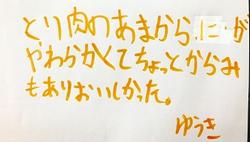 とり肉のあまからに が
やわらかくてちょっとからみ
もありおいしかった。
ゆうき